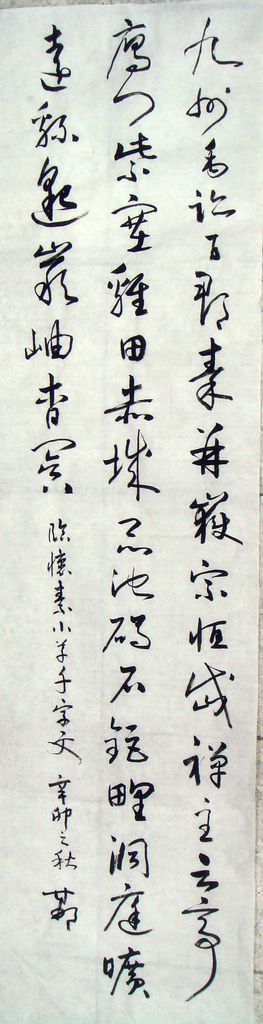 九州禹迹百郡秦并嶽宗恒岱禪主云亭
鴈門紫塞雞田赤城昆池碣石鉅野洞庭曠
遠緜邈巖岫杳冥 臨懷素小草千字文 辛卯之秋